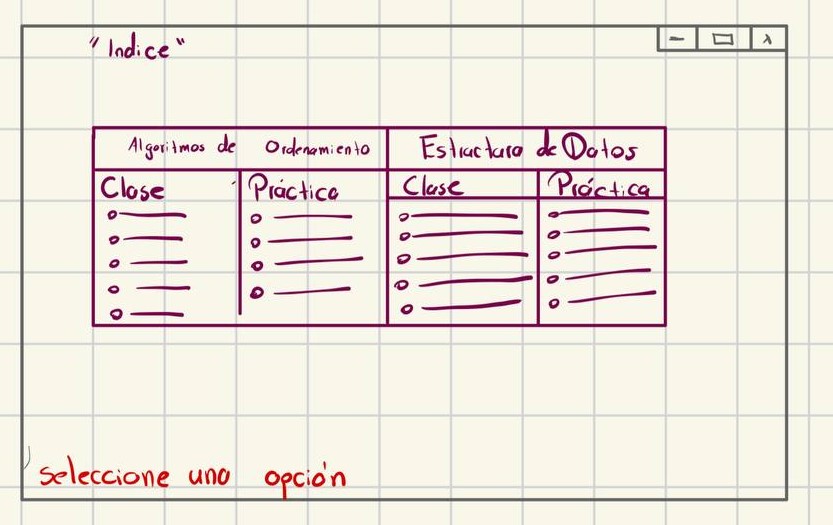 "Indice"
Algoritmos de Ordenamiento
Estructura de Datos
Clase
Práctica
Clase
Práctica
seleccione una opción